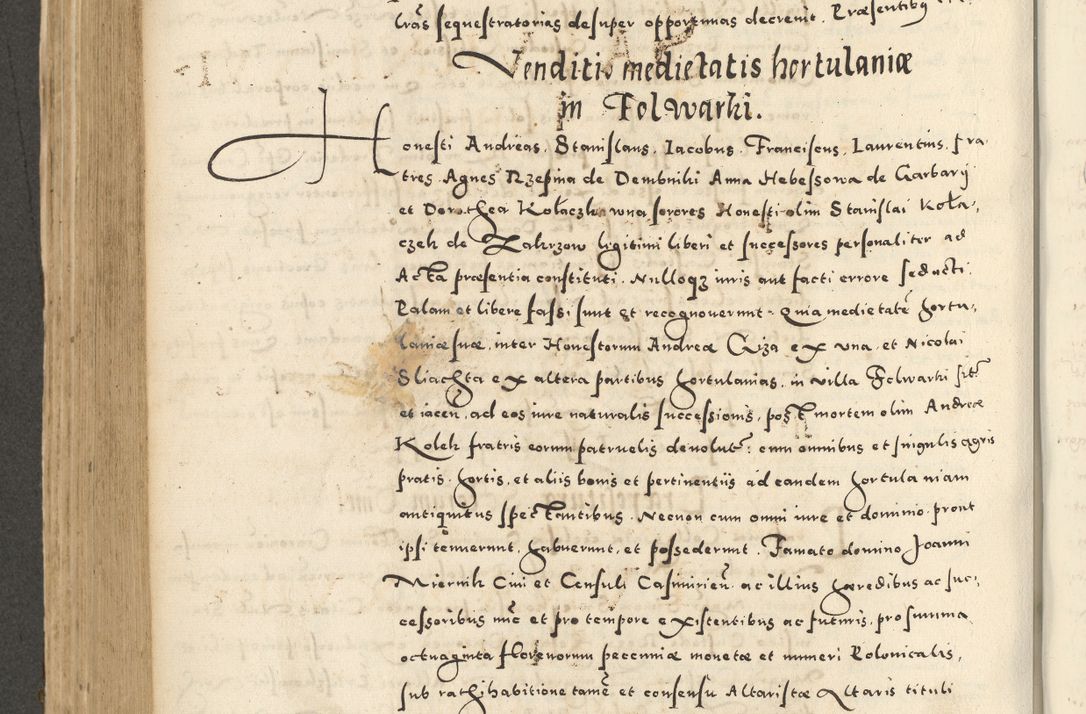 l̃ras sequestratorias desuper opportunas decrevit. Præsentibus
Venditio medietatis hortulaniæ
in Folwarki.
Honesti Andreas, Stanislaus, Iacobus, Franciscus, Laurentius, fra-
tres, Agnes Rzepina de Dembniki Anna Hebessowa de Garbarÿ
et Dorothea Kołaczkowna sorores Honesti olim Stanislai Koła-
czek de Zakrzow legitimi liberi et successores personaliter ad
Acta præsentia constituti. Nulloqz iuris aut facti errore seducti.
Palam et libere fassi sunt et recognoverunt. Quia medietatẽ hortu-
laniæ suæ, inter Honestorum Andreæ Giza ex una, et Nicolai
Sliachta ex altera partibus hortulanias, in villa Folwarki sit̃
et iaceñ, ad eos iure naturalis successionis, post mortem olim Andreæ
Kolek fratris eorum patruelis devolut̃: cum omnibus et singulis agris
pratis, hortis, et aliis bonis et pertinentiis ad eandem hortulaniam
antiquitus spectantibus. Necnon cum omni iure et dominio, prout
ipsi tenuerunt, habuerunt, et possederunt. Famato domino Joanni
Miernik Civi et Consuli Casimirieñ. ac illius hæredibus ac suc-
cessoribus nũc et pro tempore existentibus ac futuris, pro summa
octuaginta florenorum pecuniæ monetæ et numeri Polonicalis,
sub rathihabitione tamẽ et consensu Altaristæ Altaris tituli